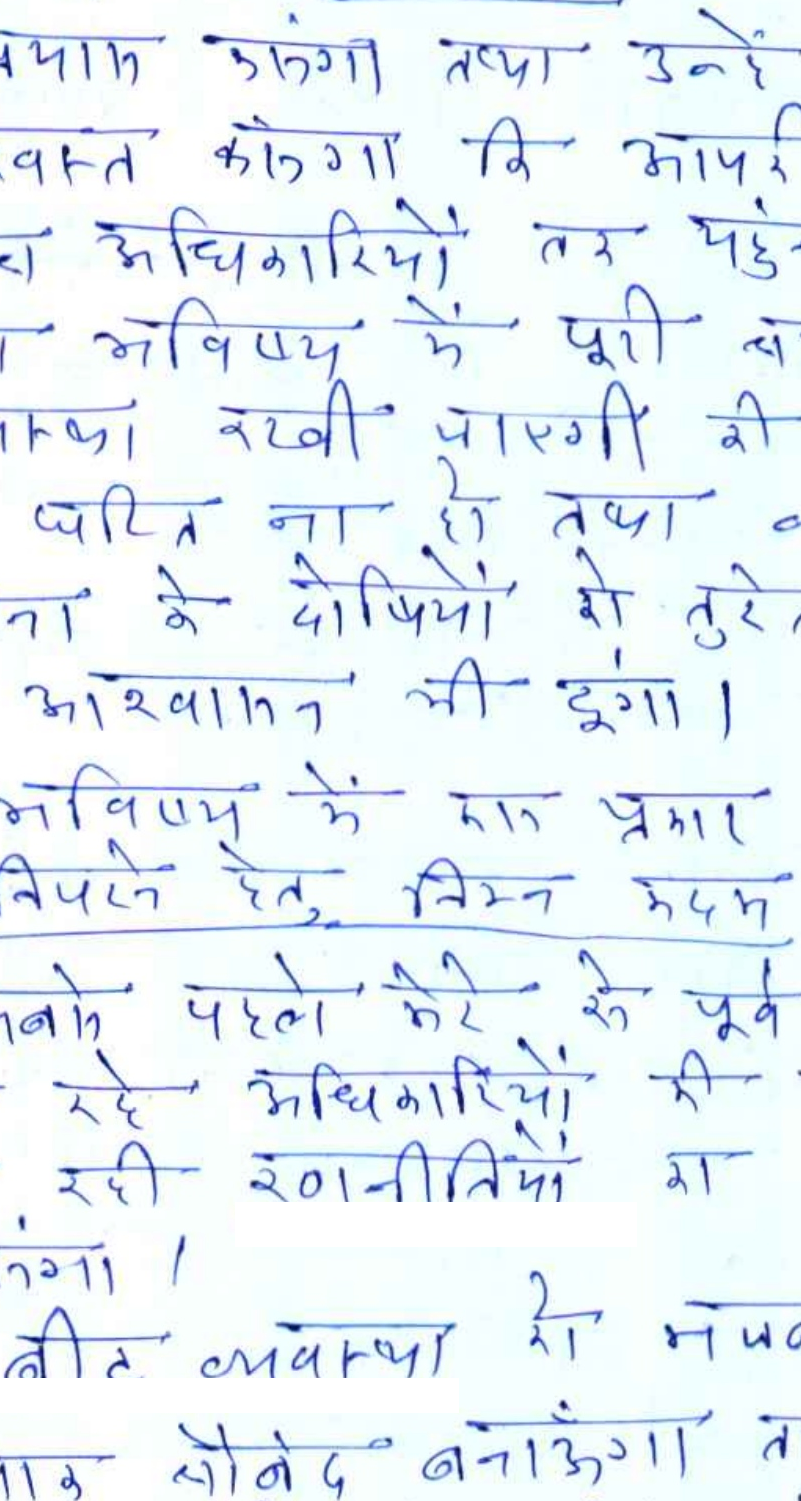 प्रयास करूंगा तथा उन्हें
करूंगा कि आपकी
अधिकारियों तक पहुं
भविष्य में पूरी
रखी जाएगी की
घटित ना हो तथा
के दोषियों को तुरंत
आश्वासन भी दूंगा।
भविष्य में इस प्रकार
निपटने हेतु निम्न कदम
सबसे पहले मेरे से पूर्व
रहे अधिकारियों की
रही रणनीतियों का
बीट व्यवस्था को
चौबंद बनाऊँगा